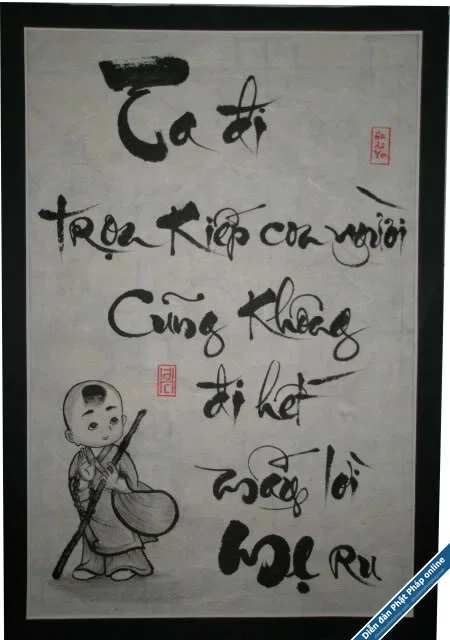 Ta đi
trọn Kiếp con người
Cũng Không
đi hết
mấy lời
Mẹ Ru
Diễn đàn Phật Pháp online